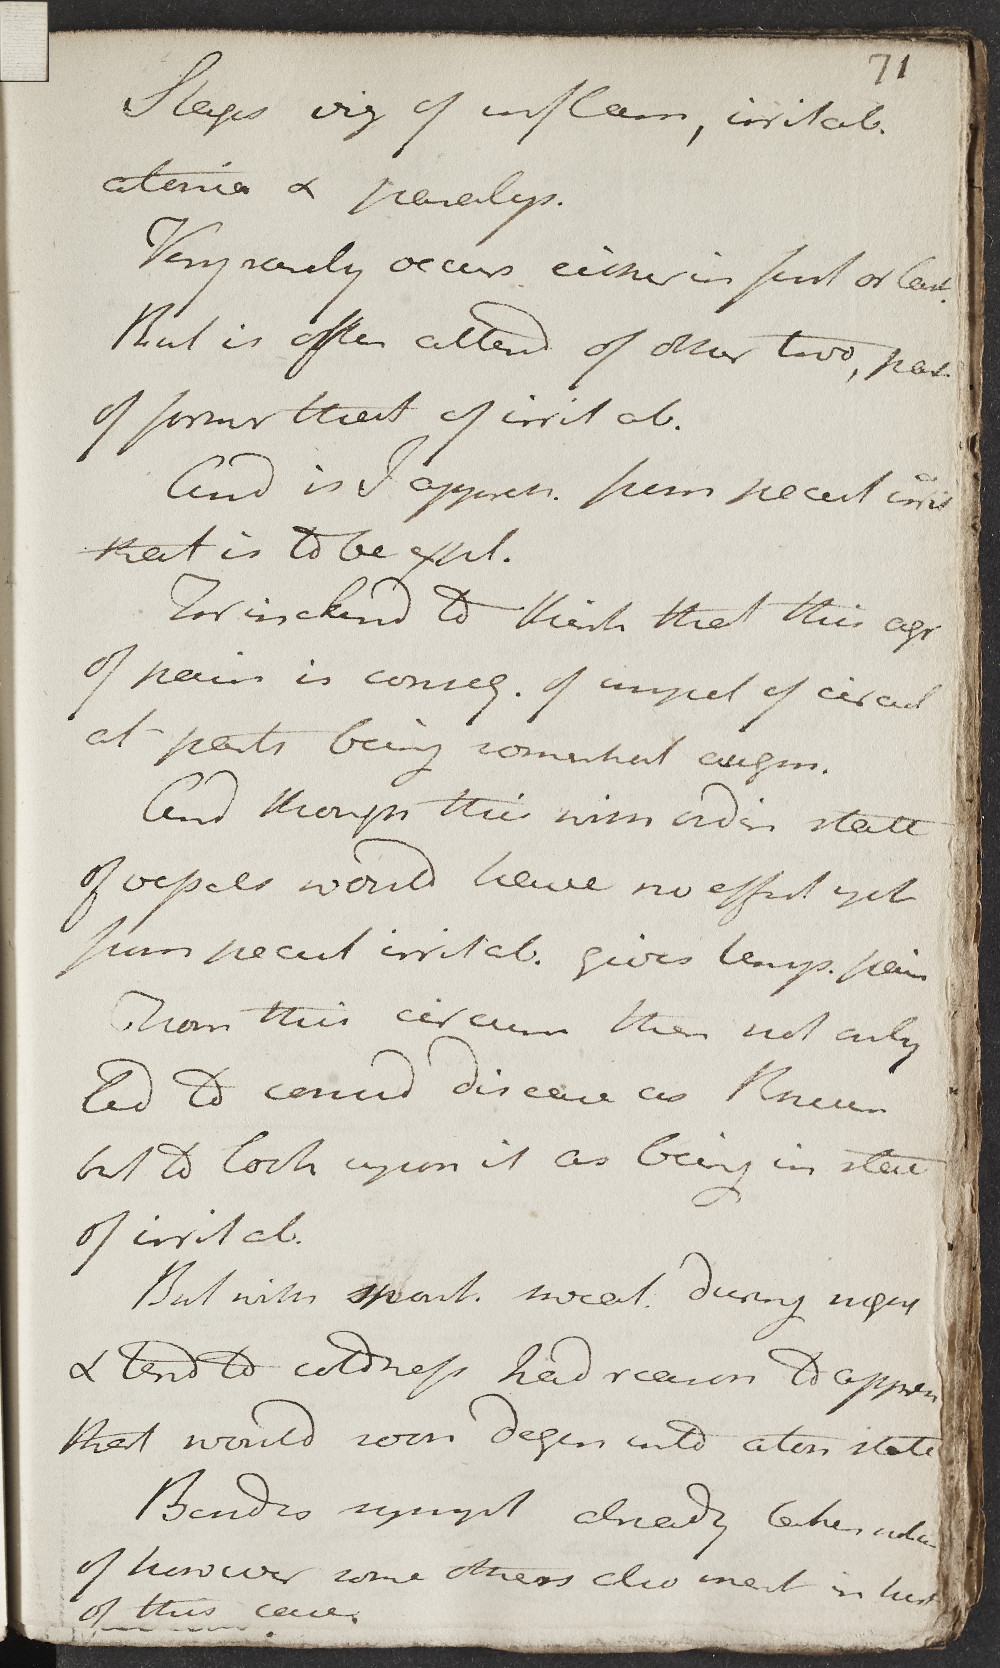 71
Stages viz of inflam, irritab.
atonia & paralys.
Very rarely occurs either in first or last.
But is often attend of other two, par
of former that of irritab.
And is I appreh. from pecul irrit
that is to be expl.
For inclind to think that this agr
of pain is conseq. of impet of circul
at parts being somewhat augm.
And though this with ordin state
of vessels would have no effect yet
from pecul irritab. gives temp. pain
From this circum then not only
led to consid disease as Rheum
but to look upon it as being in state
of irritab.
But with spont. sweat. during night
& tend to coldness had reason to appreh
that would soon degen into aton state
Besides sympt already taken
of however some others also merit in hist
of this case.